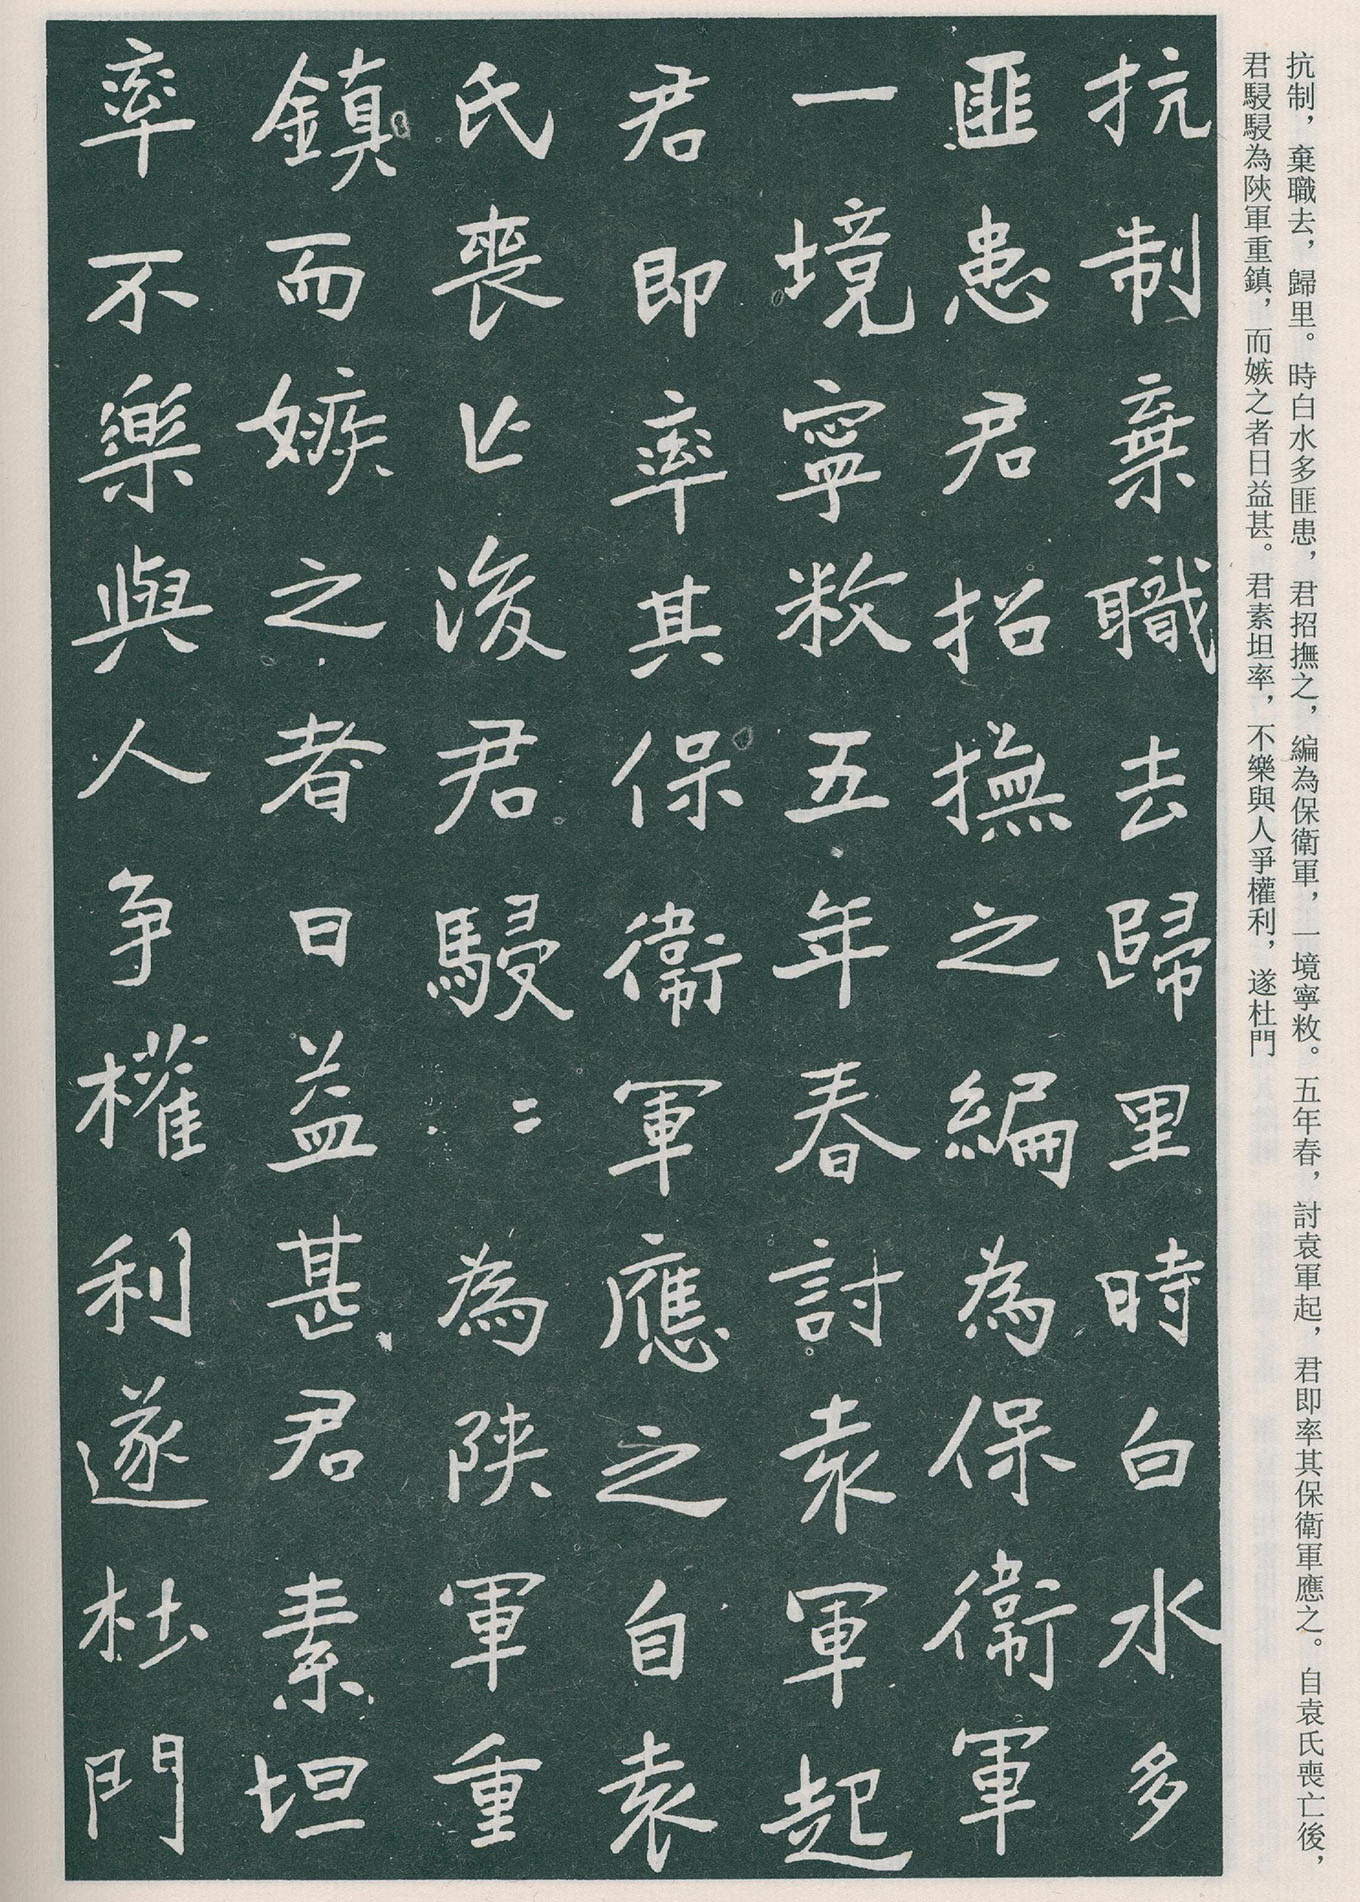 抗制，棄職去，歸里。時白水多匪患，君招撫之，編為保衛軍，一境寧敉。五年春，討袁軍起，君即率其保衛軍應之。自袁氏喪亡後，
君駸駸為陝軍重鎮，而嫉之者日益甚。君素坦率，不樂與人爭權利，遂杜門
抗制棄職去歸里時白水多
匪患君招撫之編為保衛軍
一境寧敉五年春討袁軍起
君即率其保衛軍應之自袁
氏喪亡後君駸〻為陝軍重
鎮而嫉之者日益甚君素坦
率不樂與人爭權利遂杜門